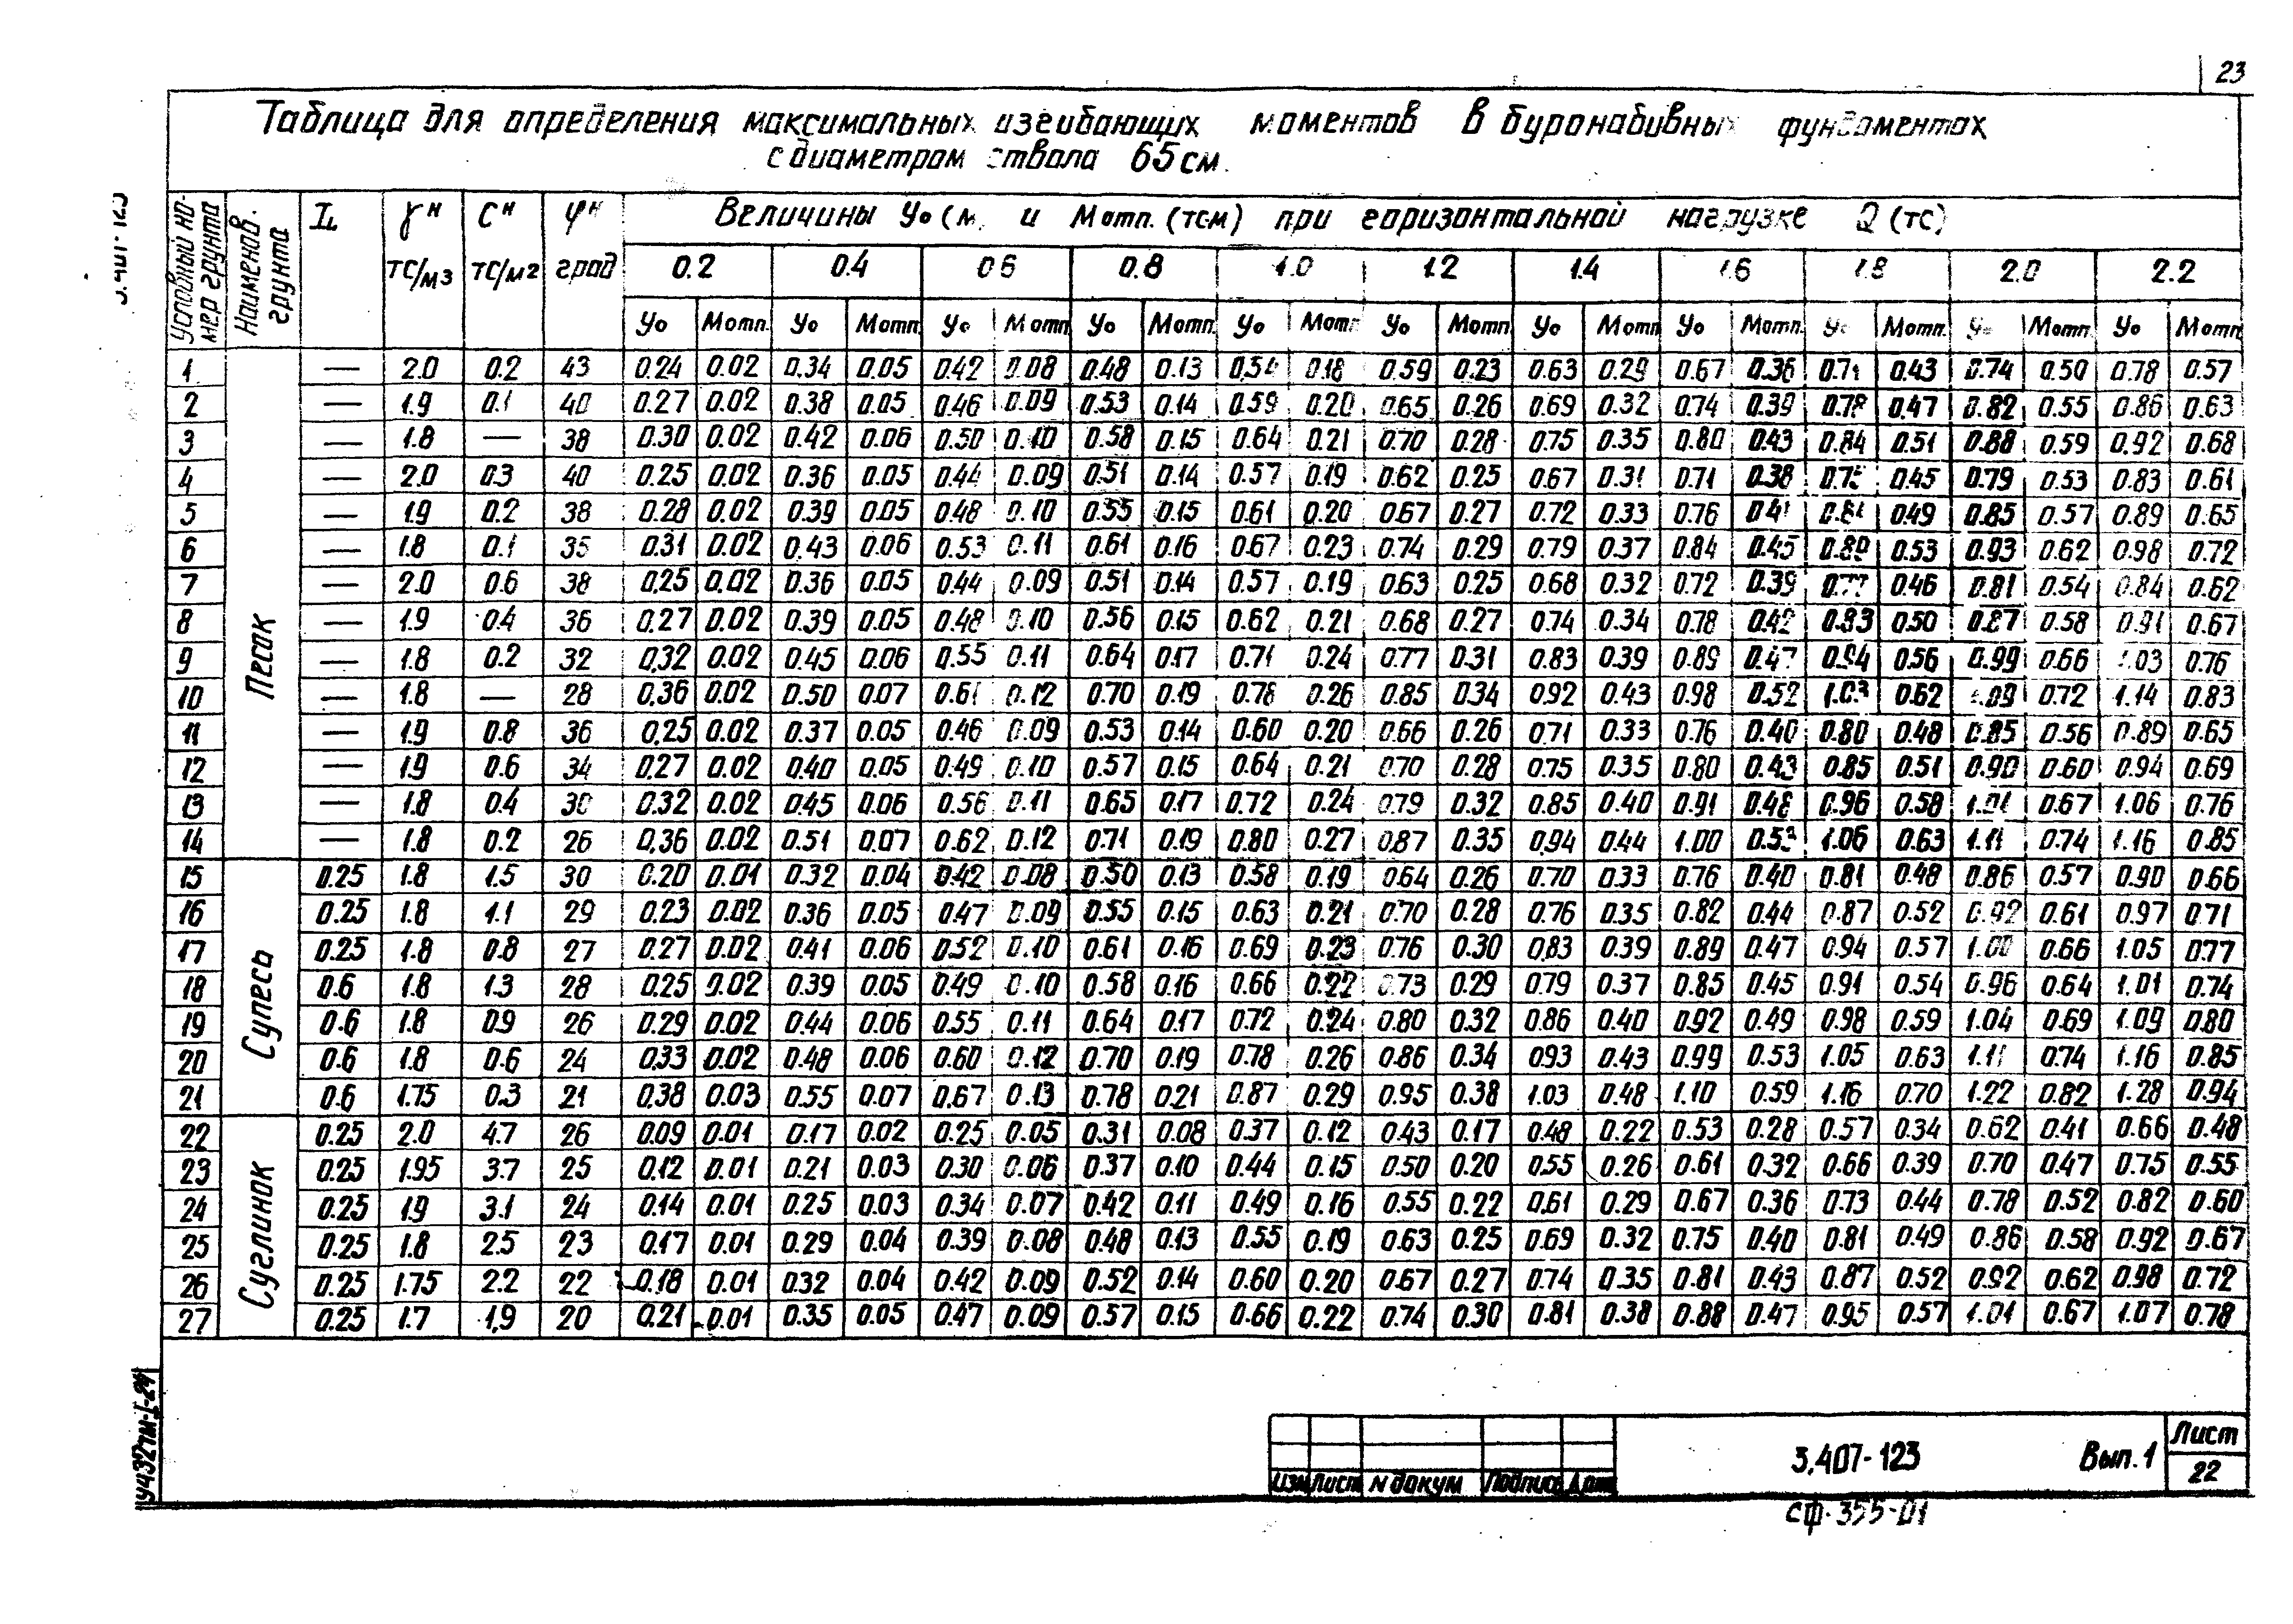 23
Таблица для определения максимальных изгибающих моментов в буронабивных фундаментах
с диаметром ствола 65 см.
Условный номер грунта | Наименов. грунта | IL | γн тс/м3 | Сн тс/м2 | φн град | Величины Уо (м) и Мотп. (тсм) при горизонтальной нагрузке Q (тс)
0.2 0.4 0.6 0.8 1.0 1.2 1.4 1.6 1.8 2.0 2.2
Уо Мотп. Уо Мотп Уо Мотп Уо Мотп. Уо Мотп Уо Мотп Уо Мотп Уо Мотп. Уо Мотп. Уо Мотп. Уо Мотп
Песок
1 — 2.0 0.2 43 0.24 0.02 0.34 0.05 0.42 0.08 0.48 0.13 0.54 0.18 0.59 0.23 0.63 0.29 0.67 0.36 0.71 0.43 0.74 0.50 0.78 0.57
2 — 1.9 0.1 40 0.27 0.02 0.38 0.05 0.46 0.09 0.53 0.14 0.59 0.20 0.65 0.26 0.69 0.32 0.74 0.39 0.78 0.47 0.82 0.55 0.86 0.63
3 — 1.8 — 38 0.30 0.02 0.42 0.06 0.50 0.10 0.58 0.15 0.64 0.21 0.70 0.28 0.75 0.35 0.80 0.43 0.84 0.51 0.88 0.59 0.92 0.68
4 — 2.0 0.3 40 0.25 0.02 0.36 0.05 0.44 0.09 0.51 0.14 0.57 0.19 0.62 0.25 0.67 0.31 0.71 0.38 0.75 0.45 0.79 0.53 0.83 0.61
5 — 1.9 0.2 38 0.28 0.02 0.39 0.05 0.48 0.10 0.55 0.15 0.61 0.20 0.67 0.27 0.72 0.33 0.76 0.41 0.81 0.49 0.85 0.57 0.89 0.65
6 — 1.8 0.1 35 0.31 0.02 0.43 0.06 0.53 0.11 0.61 0.16 0.67 0.23 0.74 0.29 0.79 0.37 0.84 0.45 0.89 0.53 0.93 0.62 0.98 0.72
7 — 2.0 0.6 38 0.25 0.02 0.36 0.05 0.44 0.09 0.51 0.14 0.57 0.19 0.63 0.25 0.68 0.32 0.72 0.39 0.77 0.46 0.81 0.54 0.84 0.62
8 — 1.9 0.4 36 0.27 0.02 0.39 0.05 0.48 0.10 0.56 0.15 0.62 0.21 0.68 0.27 0.74 0.34 0.78 0.42 0.83 0.50 0.87 0.58 0.91 0.67
9 — 1.8 0.2 32 0.32 0.02 0.45 0.06 0.55 0.11 0.64 0.17 0.71 0.24 0.77 0.31 0.83 0.39 0.89 0.47 0.94 0.56 0.99 0.66 1.03 0.76
10 — 1.8 — 28 0.36 0.02 0.50 0.07 0.61 0.12 0.70 0.19 0.78 0.26 0.85 0.34 0.92 0.43 0.98 0.52 1.03 0.62 1.09 0.72 1.14 0.83
11 — 1.9 0.8 36 0.25 0.02 0.37 0.05 0.46 0.09 0.53 0.14 0.60 0.20 0.66 0.26 0.71 0.33 0.76 0.40 0.80 0.48 0.85 0.56 0.89 0.65
12 — 1.9 0.6 34 0.27 0.02 0.40 0.05 0.49 0.10 0.57 0.15 0.64 0.21 0.70 0.28 0.75 0.35 0.80 0.43 0.85 0.51 0.90 0.60 0.94 0.69
13 — 1.8 0.4 30 0.32 0.02 0.45 0.06 0.56 0.11 0.65 0.17 0.72 0.24 0.79 0.32 0.85 0.40 0.91 0.48 0.96 0.58 1.01 0.67 1.06 0.76
14 — 1.8 0.2 26 0.36 0.02 0.51 0.07 0.62 0.12 0.71 0.19 0.80 0.27 0.87 0.35 0.94 0.44 1.00 0.53 1.06 0.63 1.11 0.74 1.16 0.85
Супесь
15 0.25 1.8 1.5 30 0.20 0.01 0.32 0.04 0.42 0.08 0.50 0.13 0.58 0.19 0.64 0.26 0.70 0.33 0.76 0.40 0.81 0.48 0.86 0.57 0.90 0.66
16 0.25 1.8 1.1 29 0.23 0.02 0.36 0.05 0.47 0.09 0.55 0.15 0.63 0.21 0.70 0.28 0.76 0.35 0.82 0.44 0.87 0.52 0.92 0.61 0.97 0.71
17 0.25 1.8 0.8 27 0.27 0.02 0.41 0.06 0.52 0.10 0.61 0.16 0.69 0.23 0.76 0.30 0.83 0.39 0.89 0.47 0.94 0.57 1.00 0.66 1.05 0.77
18 0.6 1.8 1.3 28 0.25 0.02 0.39 0.05 0.49 0.10 0.58 0.16 0.66 0.22 0.73 0.29 0.79 0.37 0.85 0.45 0.91 0.54 0.96 0.64 1.01 0.74
19 0.6 1.8 0.9 26 0.29 0.02 0.44 0.06 0.55 0.11 0.64 0.17 0.72 0.24 0.80 0.32 0.86 0.40 0.92 0.49 0.98 0.59 1.04 0.69 1.09 0.80
20 0.6 1.8 0.6 24 0.33 0.02 0.48 0.06 0.60 0.12 0.70 0.19 0.78 0.26 0.86 0.34 0.93 0.43 0.99 0.53 1.05 0.63 1.11 0.74 1.16 0.85
21 0.6 1.75 0.3 21 0.38 0.03 0.55 0.07 0.67 0.13 0.78 0.21 0.87 0.29 0.95 0.38 1.03 0.48 1.10 0.59 1.16 0.70 1.22 0.82 1.28 0.94
Суглинок
22 0.25 2.0 4.7 26 0.09 0.01 0.17 0.02 0.25 0.05 0.31 0.08 0.37 0.12 0.43 0.17 0.48 0.22 0.53 0.28 0.57 0.34 0.62 0.41 0.66 0.48
23 0.25 1.95 3.7 25 0.12 0.01 0.21 0.03 0.30 0.06 0.37 0.10 0.44 0.15 0.50 0.20 0.55 0.26 0.61 0.32 0.66 0.39 0.70 0.47 0.75 0.55
24 0.25 1.9 3.1 24 0.14 0.01 0.25 0.03 0.34 0.07 0.42 0.11 0.49 0.16 0.55 0.22 0.61 0.29 0.67 0.36 0.73 0.44 0.78 0.52 0.82 0.60
25 0.25 1.8 2.5 23 0.17 0.01 0.29 0.04 0.39 0.08 0.48 0.13 0.55 0.19 0.63 0.25 0.69 0.32 0.75 0.40 0.81 0.49 0.86 0.58 0.92 0.67
26 0.25 1.75 2.2 22 0.18 0.01 0.32 0.04 0.42 0.09 0.52 0.14 0.60 0.20 0.67 0.27 0.74 0.35 0.81 0.43 0.87 0.52 0.92 0.62 0.98 0.72
27 0.25 1.7 1,9 20 0.21 0.01 0.35 0.05 0.47 0.09 0.57 0.15 0.66 0.22 0.74 0.30 0.81 0.38 0.88 0.47 0.95 0.57 1.01 0.67 1.07 0.78
Изм Лист N докум Подпись Дата
3.407-123 Вып. 1
Лист
22
сф.355-01